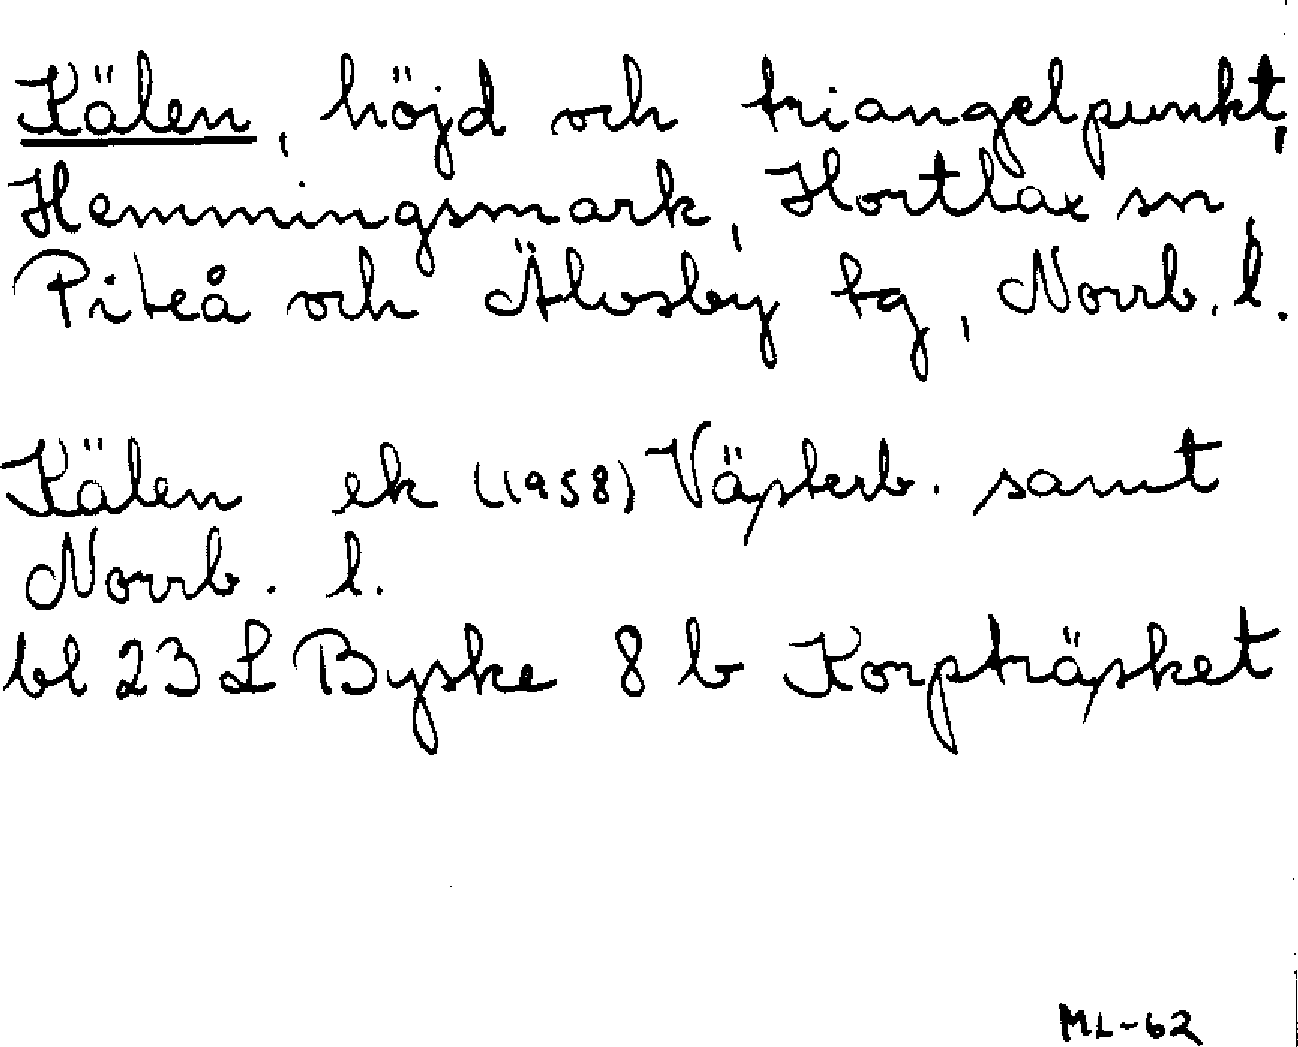 Kälen, höjd och triangelpunkt,
Hemmingsmark, Hortlax sn,
Piteå och Älvsby tg, Norrb. l.
Kälen ek (1958) Västerb. samt
Norrb. l.
bl 23 L Byske 8 b Korpträsket
ML-62